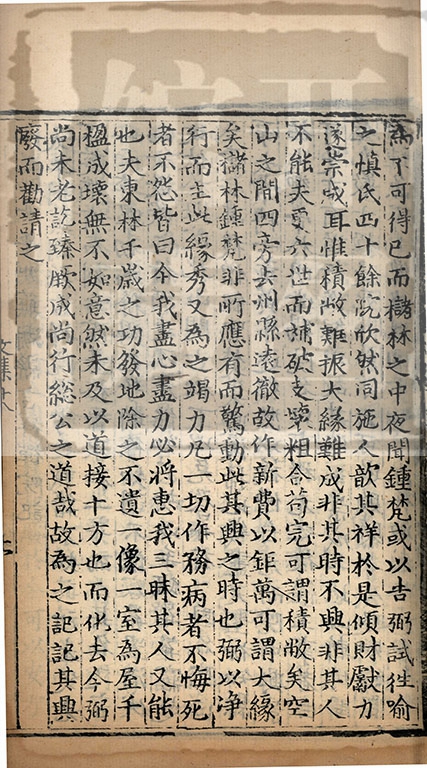 為了可得已而檮林之中夜聞鍾梵或以告弼試往喻
之慎氏四十餘院欣然同施人歆其祥於是傾財獻力
遂崇成耳惟積敝難振大緣難成非其時不興非其人
不能夫更六世而補破支壞粗合苟完可謂積敝矣空
山之間四旁去州縣遠徹故作新費以鉅萬可謂大緣
矣檮林鍾梵非所應有而驚動此其興之時也弼以净
行而主此緣秀又為之竭力凡一切作務病者不悔死
者不怨皆曰令我盡心盡力必將惠我三昧其人又能
也夫東林千歲之功發地除之不遺一像一室為屋千
楹成壞無不如意然未及以道接十方也而化去今弼
尚未老訖臻厥成尚行總公之道哉故為之記記其興
廢而勸請之